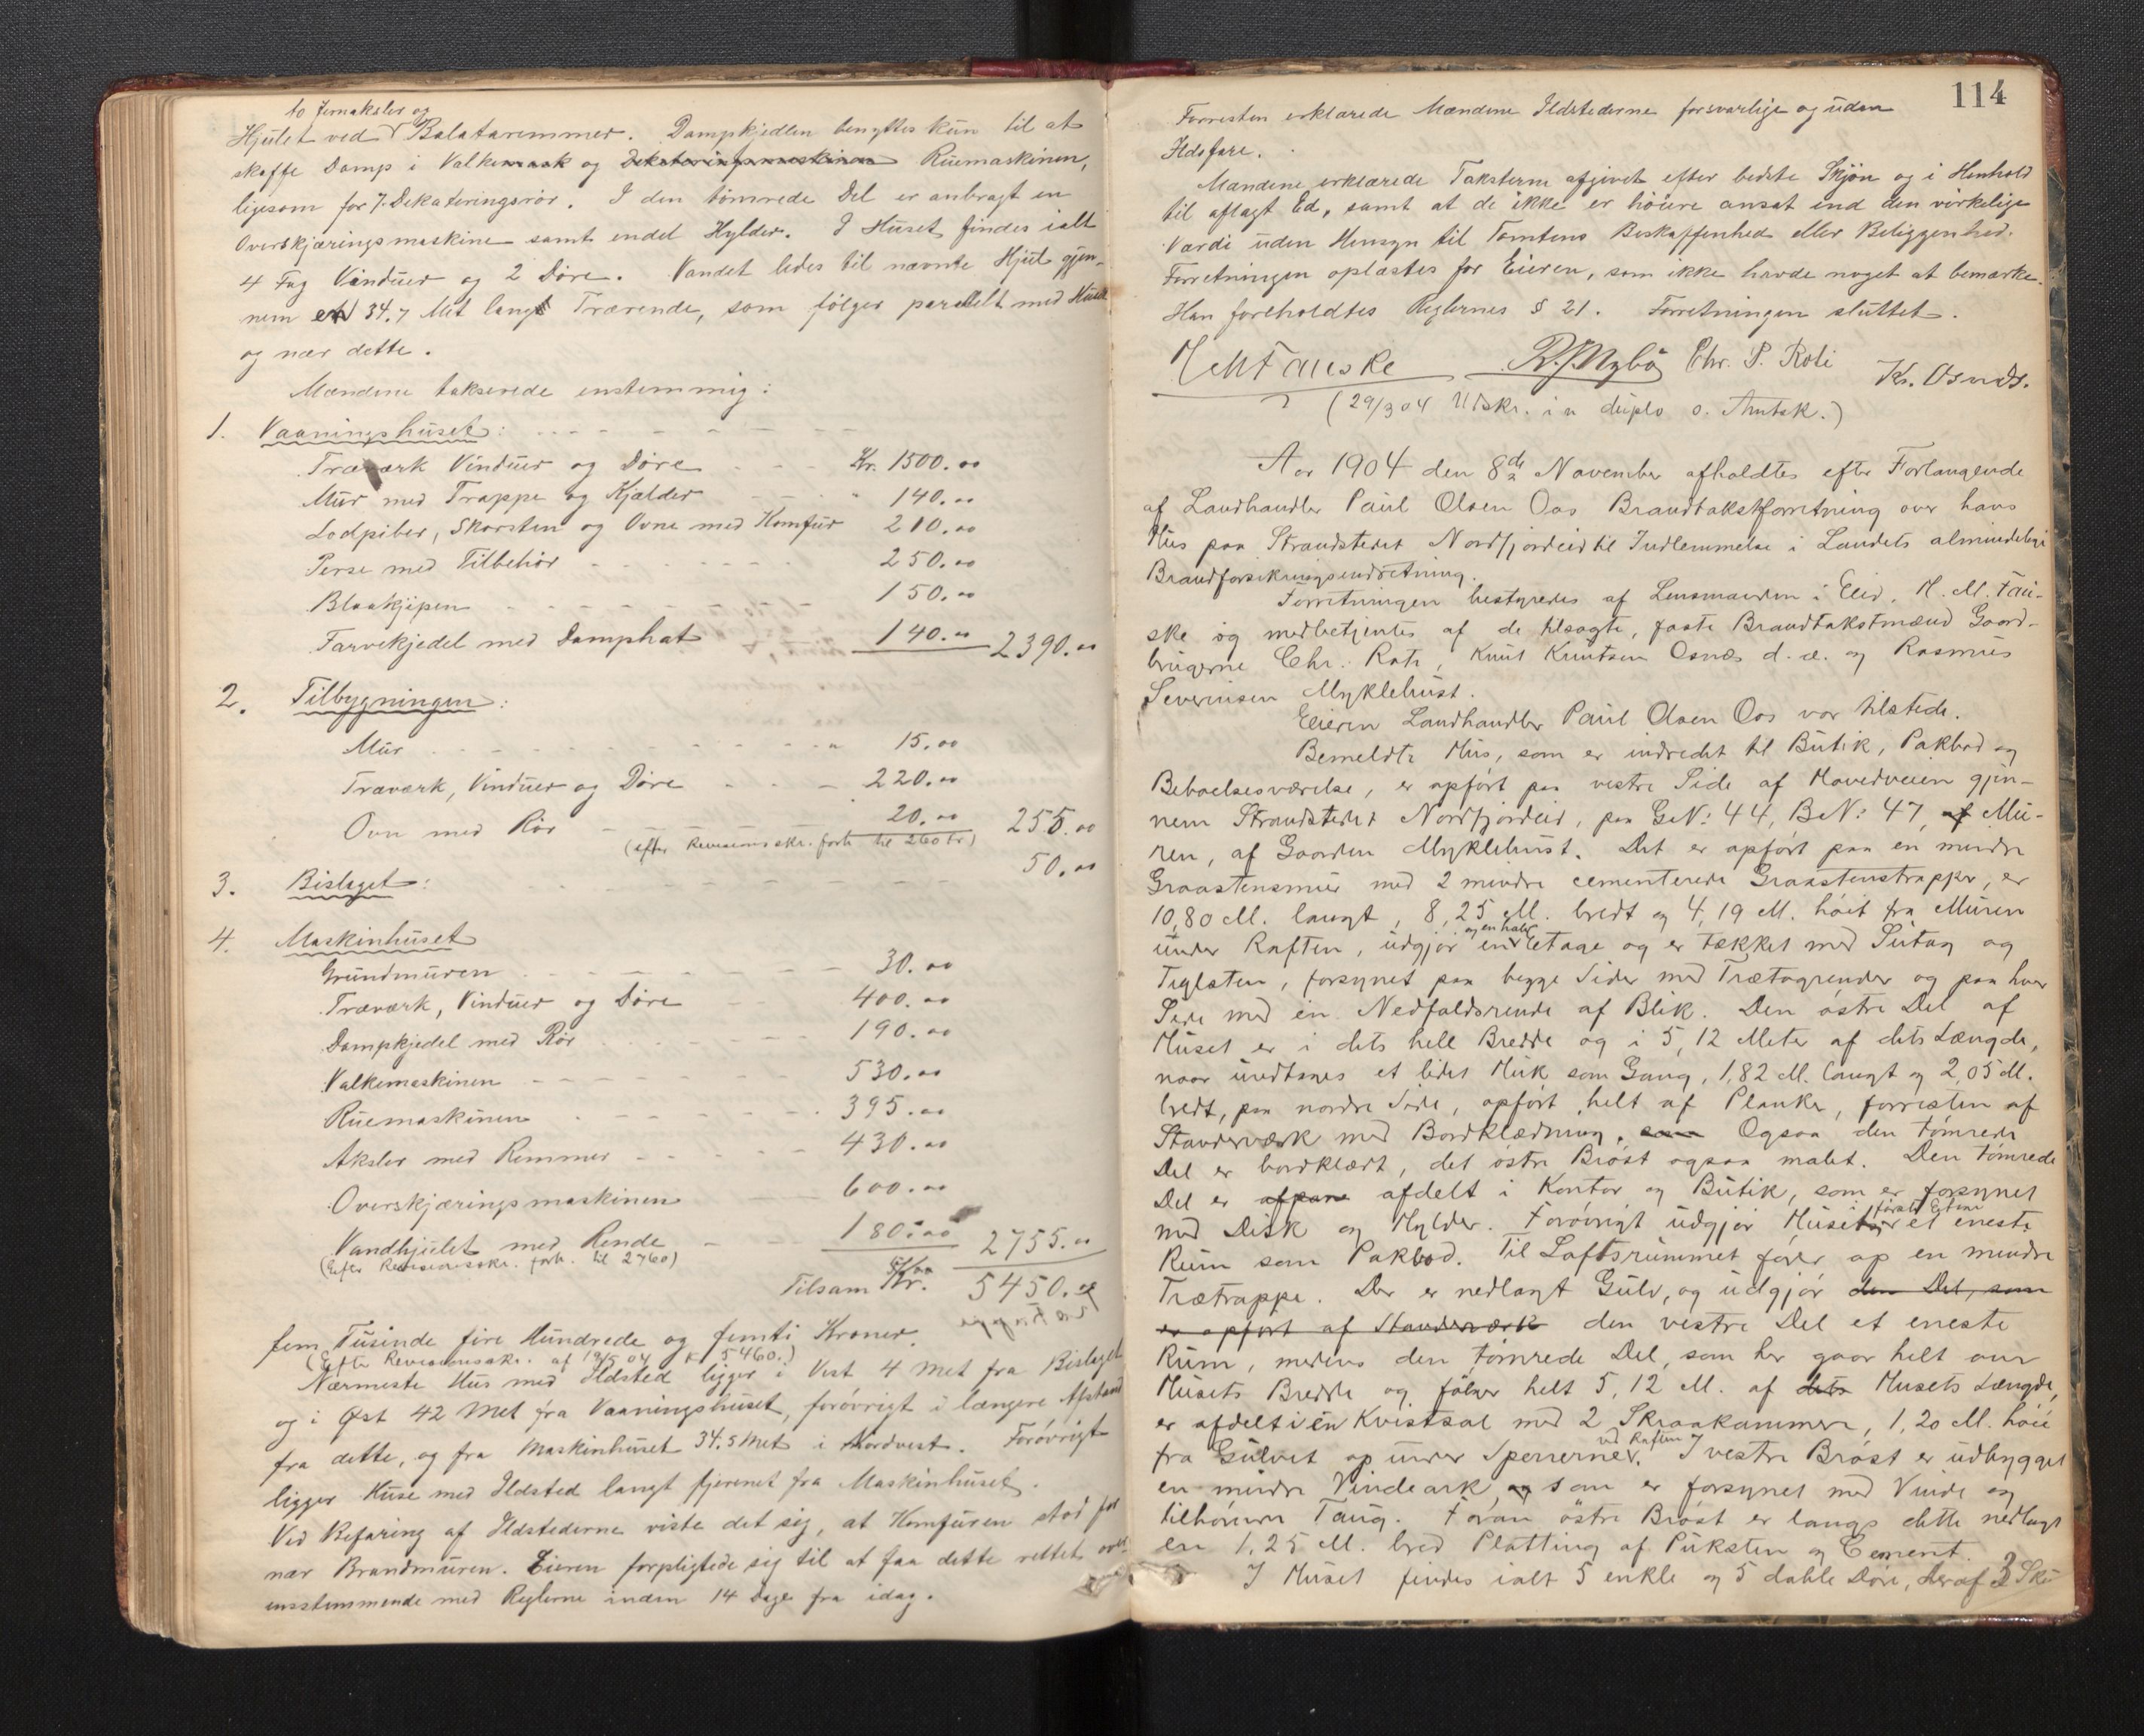 to Jernaksler og
Hjulet ved Balataremmer. Dampkjedlen benyttes kun til at
skaffe Damp i Valkemask og Dekateringsmaskinen Ruemaskinen,
ligesom for 7. Dekateringsrør. I den tømrede Del er anbragt en
Overskjæringsmaskine samt endel Hylder. I Huset findes ialt
4 Fag Vinduer og 2 Døre. Vandet ledes til nævnte Hjul gjen-
nem en 34.7 Met lang Trærende, som følger parallelt med Huset
og nær dette.
Mændene takserede enstemmig:
1. Vaaningshuset:
Træværk Vinduer og Døre Kr. 1500.00
Mur med Trappe og Kjælder " 140.00
Lodpiber, Skorsten og Ovne med Komfur 210.00
Perse med Tilbehør 250.00
Blaakjipen 150.00
Farvekjedel med Damphat 140.00 2390.00
2. Tilbygningen:
Mur " 15.00
Træværk, Vinduer og Døre 220.00
Ovn med Rør 20.00 255.00
(efter Revisionsskr. forh. til 260 kr)
3. Bislaget: 50.00
4. Maskinhuset
Grundmuren 30.00
Træværk, Vinduer og Døre 400.00
Dampkjedel med Rør 190.00
Valkemaskinen 530.00
Ruemaskinen 395.00
Aksler med Remmer 430.00
Overskjæringsmaskinen 600.00
Vandhjulet med Rende 180.00 2755.00
(Efter Revisionsskr. forh. til 2760)
Tilsam Kr. 5450.00
fem Tusinde fire Hundrede og femti Kroner.
(Efter Revisionsskr. af 19/5 04 kr 5460.)
Nærmeste Hus med Ildsted ligger i Vest 4 Met fra Bislaget
og i Øst 42 Met fra Vaaningshuset, forøvrigt i længere Afstand
fra dette, og fra Maskinhuset 34.5 Met i Nordvest. Forøvrigt
ligger Huse med Ildsted langt fjernet fra Maskinhuset.
Ved Befaring af Ildstederne viste det sig, at Komfuren stod for
nær Brandmuren. Eieren forpligtede sig til at faa dette rettet over
ensstemmende med Reglerne inden 14 Dage fra idag.
114
Forresten erklærede Mændene Ildstederne forsvarlige og uden
Ildsfare.
Mændene erklærede Taksterne afgivet efter bedste Skjøn og i Henhold
til aflagt Ed, samt at de ikke er høiere ansat end den virkelige
Værdi uden Hensyn til Tomtens Beskaffenhed eller Beliggenhed.
Forretningen oplæstes for Eieren, som ikke havde noget at bemærke.
Han foreholdtes Reglernes § 21. Forretningen sluttet.
H M Fauske R. J. Myklb Chr. P. Roti Kr. Osnæs.
(29/3 04 Udskr. in duplo o. Amtsk.)
Aar 1904 den 8de November afholdtes efter Forlangende
af Landhandler Paul Olsen Oos Brandtakstforretning over hans
Hus paa Strandstedet Nordfjordeid til Indlemmelse i Landets almindelige
Brandforsikringsindretning.
Forretningen bestyredes af Lensmanden i Eid, H. M. Fau-
ske og medbetjentes af de tilsagte, faste Brandtakstmænd Gaard-
brugerne Chr. Roti, Knut Knutsen Osnæs d. æ. og Rasmus
Severinsen Myklebust.
Eieren Landhandler Paul Olsen Oos var tilstede.
Bemeldte Hus, som er indredet til Butik, Pakbod og
Beboelsesværelse, er opført paa vestre Side af Hovedveien gjen-
nem Strandstedet Nordfjordeid, paa G.N: 44, B.N: 47, af Mu-
ren, af Gaarden Myklebust. Det er opført paa en mindre
Graastensmur med 2 mindre cementerede Graastenstrapper, er
10,80 M. langt, 8,25 M. bredt og 4,19 M. høit fra Muren
under Raften, udgjør en og en halv Etage og er tækket med Sutag og
Teglsten, forsynet paa begge Sider med Trætagrender og paa hver
Side med én Nedfaldsrende af Blik. Den østre Del af
Huset er i dets hele Bredde og i 5,12 Meter af dets Længde,
naar undtages et lidet Huk som Gang, 1,82 M. langt og 2,05 M.
bredt, paa nordre Side, opført helt af Planker, forresten af
Standerværk med Bordklædning, som Ogsaa den tømrede
Del er bordklædt, det østre Brøst ogsaa malet. Den tømrede
Del er afpane afdelt i Kontor og Butik, som er forsynet
med Disk og Hylder. Forøvrigt udgjør Husets første Etage et eneste
Rum som Pakbod. Til Loftsrummet fører op en mindre
Trætrappe. Der er nedlagt Gulv, og udgjør den Del, som
er opført af Standerværk den vestre Del et eneste
Rum, medens den tømrede Del, som her gaar helt over
Husets Bredde og følger helt 5,12 M. af dets Husets Længde,
er afdelt i én Kvistsal med 2 Skraakammere, 1,20 M. høie
fra Gulvet op under Sperrerne ved Raften. I vestre Brøst er udbygget
en mindre Vindeark, og som er forsynet med Vinde og
tilhørende Taug. Foran østre Brøst er langs dette nedlagt
en 1,25 M. bred Platting af Puksten og Cement.
I Huset findes ialt 5 enkle og 5 doble Døre, deraf 3 Sky